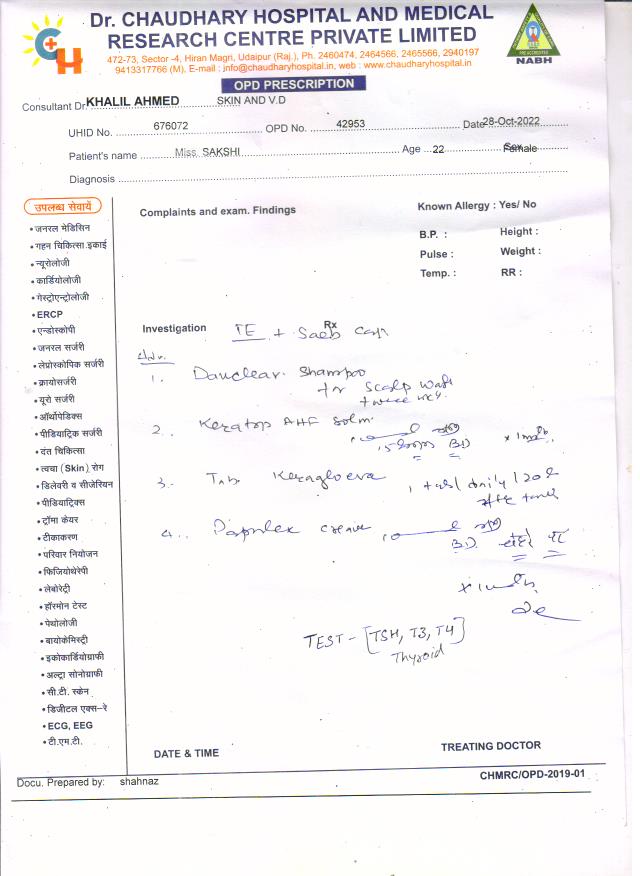 Dr. CHAUDHARY HOSPITAL AND MEDICAL
RESEARCH CENTRE PRIVATE LIMITED
472-73, Sector -4, Hiran Magri, Udaipur (Raj.), Ph. 2460474, 2464566, 2465566, 2940197
9413317766 (M), E-mail : jnfo@chaudharyhospital.in, web : www.chaudharyhospital.in
CH
NABH
OPD PRESCRIPTION
Consultant Dr. KHALIL AHMED SKIN AND V.D
UHID No. 676072 OPD No. 42953 Date 28-Oct-2022
Patient's name Miss. SAKSHI Age 22 Sex Female
Diagnosis
उपलब्ध सेवायें
• जनरल मेडिसिन
• गहन चिकित्सा इकाई
• न्यूरोलोजी
• कार्डियोलोजी
• गेस्ट्रोएन्ट्रोलोजी
• ERCP
• एन्डोस्कोपी
• जनरल सर्जरी
• लेप्रोस्कोपिक सर्जरी
• क्रायोसर्जरी
• यूरो सर्जरी
• ऑर्थोपेडिक्स
• पीडियाट्रिक सर्जरी
• दंत चिकित्सा
• त्वचा (Skin) रोग
• डिलेवरी व सीजेरियन
• पीडियाट्रिक्स
• ट्रॉमा केयर
• टीकाकरण
• परिवार नियोजन
• फिजियोथेरेपी
• लेबोरेट्री
• हॉरमोन टेस्ट
• पेथोलोजी
• बायोकेमिस्ट्री
• इकोकार्डियोग्राफी
• अल्ट्रा सोनोग्राफी
• सी.टी. स्केन
• डिजीटल एक्स-रे
• ECG, EEG
• टी.एम.टी.
Complaints and exam. Findings
Known Allergy : Yes/ No
B.P. : Height :
Pulse : Weight :
Temp. : RR :
Rx
Investigation TE +
Adv.
1. Danclear Shampoo
for Scalp wash
twice
2. Keratop AHF Soln.
BD
3. Tab Keragloeva
1 tab daily
4. Papulex cream
B.D.
TEST - [TSH, T3, T4]
Thyroid
DATE & TIME
TREATING DOCTOR
Docu. Prepared by: shahnaz
CHMRC/OPD-2019-01